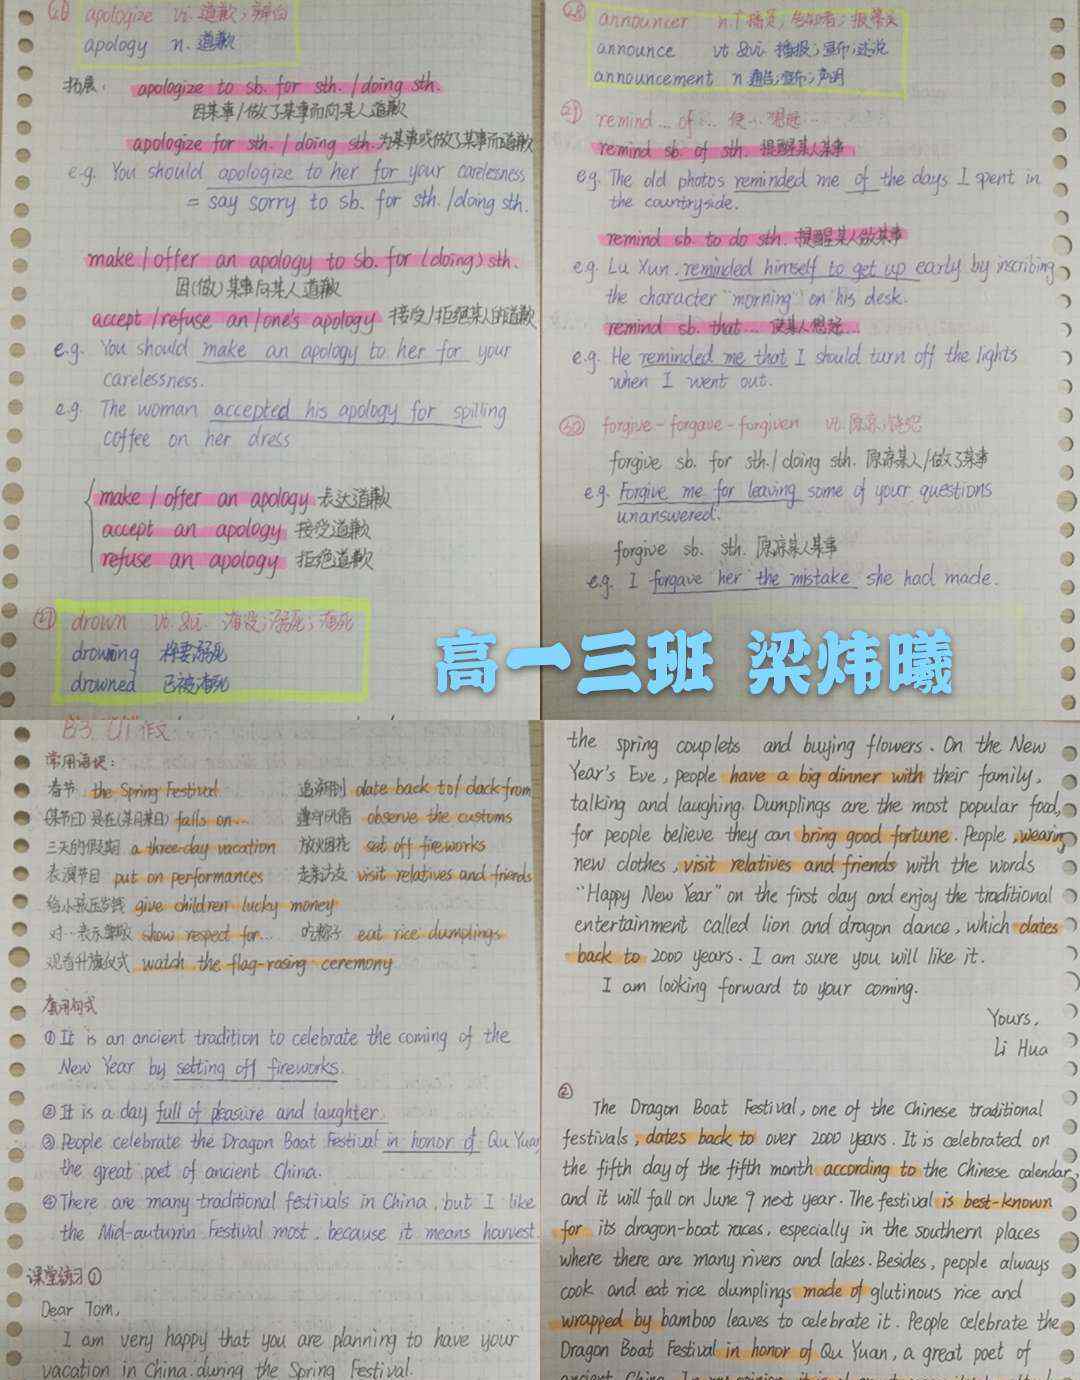 ㉖ apologize vi. 道歉；辩白
apology n. 道歉
拓展： apologize to sb. for sth. / doing sth.
因某事/做了某事而向某人道歉
apologize for sth. / doing sth. 为某事或做了某事而道歉
e.g. You should apologize to her for your carelessness
= say sorry to sb. for sth. / doing sth.
make / offer an apology to sb. for (doing) sth.
因(做)某事向某人道歉
accept / refuse an / one's apology 接受/拒绝某人的道歉
e.g. You should make an apology to her for your
carelessness.
e.g. The woman accepted his apology for spilling
coffee on her dress
make / offer an apology 表达道歉
accept an apology 接受道歉
refuse an apology 拒绝道歉
㉗ drown vt. &vi. 淹没；溺死；淹死
drowning 将要溺死
drowned 已被淹死
㉘ announcer n. 广播员；告知者；报幕员
announce vt &vi. 播报；宣布；述说
announcement n 通告；宣布；声明
㉙ remind ... of ... 使…想起…
remind sb. of sth. 提醒某人某事
e.g. The old photos reminded me of the days I spent in
the countryside.
remind sb. to do sth. 提醒某人做某事
e.g. Lu Xun reminded himself to get up early by inscribing
the character "morning" on his desk.
remind sb. that ... 使某人想起…
e.g. He reminded me that I should turn off the lights
when I went out.
㉚ forgive - forgave - forgiven vt. 原谅；饶恕
forgive sb. for sth. / doing sth. 原谅某人/做了某事
e.g. Forgive me for leaving some of your questions
unanswered.
forgive sb. sth. 原谅某人某事
e.g. I forgave her the mistake she had made.
高一三班 梁炜曦
B3 "U1" 作文
常用语块：
春节 the Spring Festival 追溯到 date back to / back from
(某节日)是在(某月某日) falls on... 遵守风俗 observe the customs
三天的假期 a three-day vacation 放烟花 set off fireworks
表演节目 put on performances 走亲访友 visit relatives and friends
给小孩压岁钱 give children lucky money
对…表示尊敬 show respect for... 吃粽子 eat rice dumplings
观看升旗仪式 watch the flag-rasing ceremony
套用句式
① It is an ancient tradition to celebrate the coming of the
New Year by setting off fireworks.
② It is a day full of pleasure and laughter.
③ People celebrate the Dragon Boat Festival in honor of Qu Yuan,
the great poet of ancient China.
④ There are many traditional festivals in China, but I like
the Mid-autumn Festival most, because it means harvest.
课堂练习①
Dear Tom,
I am very happy that you are planning to have your
vacation in China during the Spring Festival.
the spring couplets and buying flowers. On the New
Year's Eve, people have a big dinner with their family,
talking and laughing. Dumplings are the most popular food,
for people believe they can bring good fortune. People, wearing
new clothes, visit relatives and friends with the words
"Happy New Year" on the first day and enjoy the traditional
entertainment called lion and dragon dance, which dates
back to 2000 years. I am sure you will like it.
I am looking forward to your coming.
Yours,
Li Hua
②
The Dragon Boat Festival, one of the Chinese traditional
festivals, dates back to over 2000 years. It is celebrated on
the fifth day of the fifth month according to the Chinese calendar,
and it will fall on June 9 next year. The festival is best-known
for its dragon-boat races, especially in the southern places
where there are many rivers and lakes. Besides, people always
cook and eat rice dumplings made of glutinous rice and
wrapped by bamboo leaves to celebrate it. People celebrate the
Dragon Boat Festival in honor of Qu Yuan, a great poet of